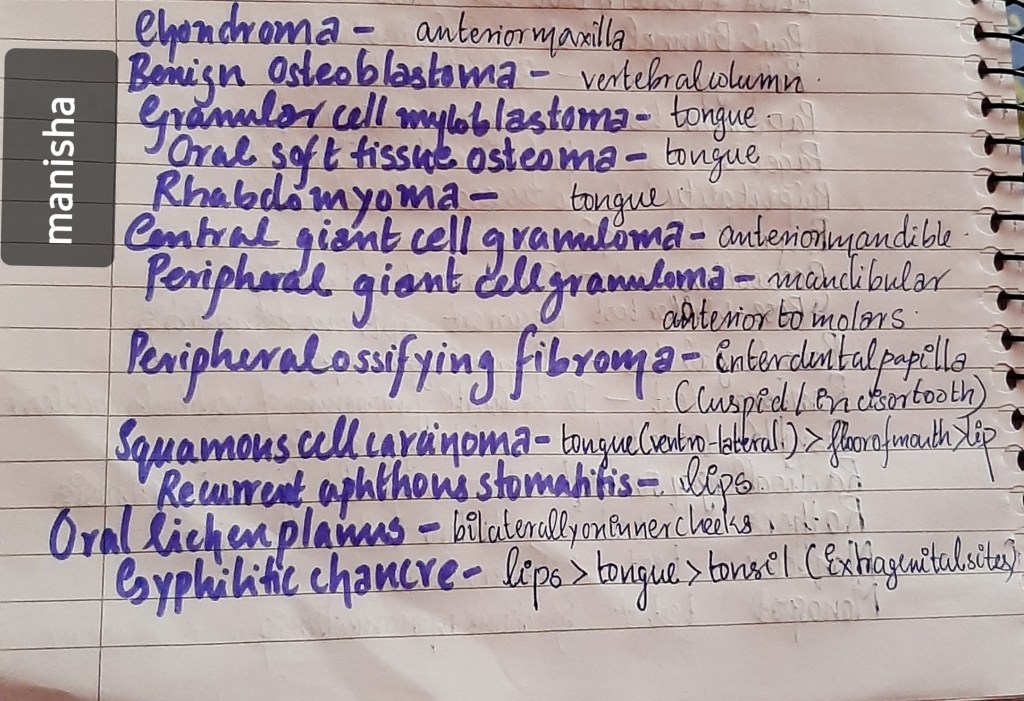 manisha
Chondroma - anterior maxilla
Benign Osteoblastoma - vertebral column.
Granular cell myloblastoma - tongue.
Oral soft tissue osteoma - tongue
Rhabdomyoma - tongue
Central giant cell granuloma - anterior mandible.
Peripheral giant cell granuloma - mandibular
anterior to molars.
Peripheral ossifying fibroma - interdental papilla
(Cuspid / incisor tooth)
Squamous cell carcinoma - tongue (ventro-lateral) > floor of mouth > lip
Recurrent aphthous stomatitis - lips.
Oral lichen planus - bilaterally on inner cheeks.
Syphilitic chancre - lips > tongue > tonsil (Extragenital sites)